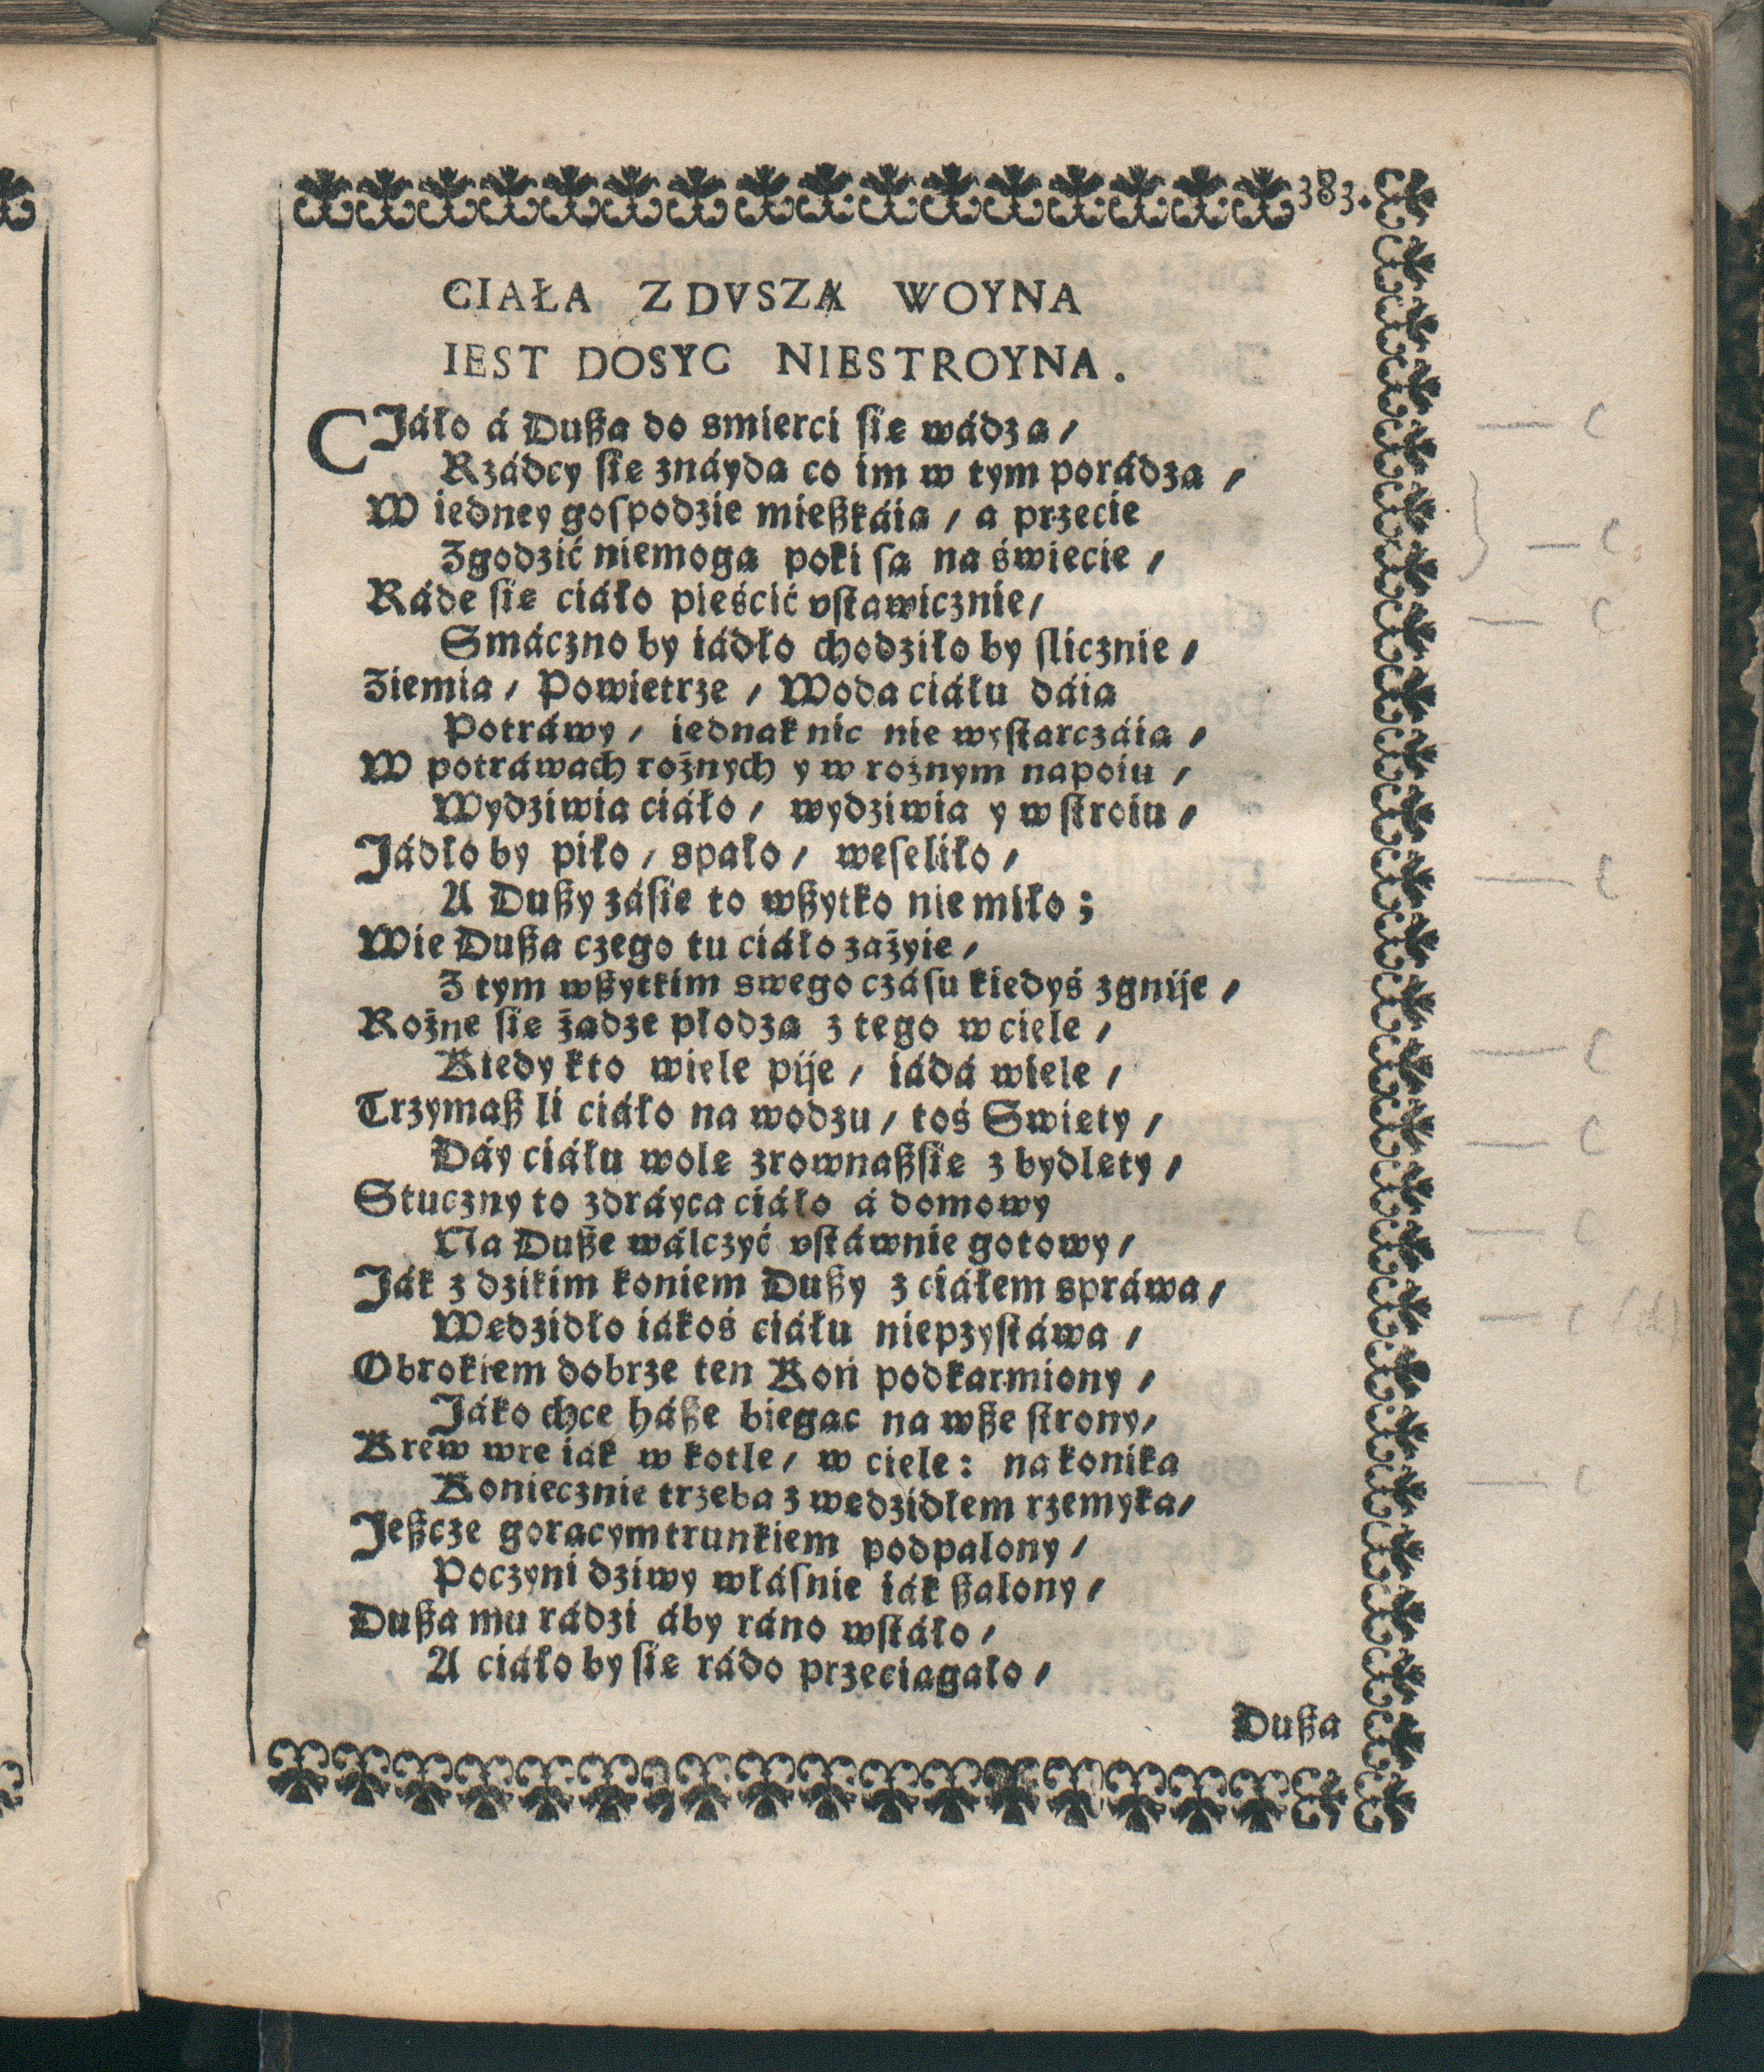 383.
CIAŁA Z DVSZĄ WOYNA
IEST DOSYC NIESTROYNA.
CJáło á Dußa do smierci ſię wádzą /
Rządcy ſię znáydą co im w tym porádzą /
W iedney goſpodzie mießkáią / a przecie
Zgodzić niemogą poki ſą na świecie /
Ráde ſię ciáło pieśćić vſtawicznie /
Smáczno by iádło chodziło by ſlicznie /
Ziemia / Powietrze / Woda ciáłu dáią
Potráwy / iednak nic nie wyſtarczáią /
W potráwach rożnych y w rożnym napoiu /
Wydziwia ciáło / wydziwia y w ſtroiu /
Jádło by piło / spało / weſeliło /
A Dußy záſię to wßytko nie miło ;
Wie Dußa czego tu ciáło zażyie /
Z tym wßytkim swego czáſu kiedyś zgnije /
Rożne ſię żadze płodzą z tego w ciele /
Kiedy kto wiele pije / iádá wiele /
Trzymaß li ciáło na wodzu / toś Swięty /
Dáy ciáłu wole zrownaßſię z bydlęty /
Stuczny to zdráyca ciáło á domowy
Na Dußę wálczyć vſtáwnie gotowy /
Ják z dzikim koniem Dußy z ciáłem spráwa /
Wędzidło iákoś ciáłu niepzyſtáwa /
Obrokiem dobrze ten Koń podkarmiony /
Jáko chce háße biegac na wße ſtrony /
Krew wre iák w kotle / w ciele : na konika
Koniecznie trzeba z wędzidłem rzemyka /
Jeßcze gorącym trunkiem podpalony /
Poczyni dziwy włáſnie iák ßalony /
Dußa mu rádzi áby ráno wſtáło /
A ciáło by ſię rádo przeciągało /
Dußa